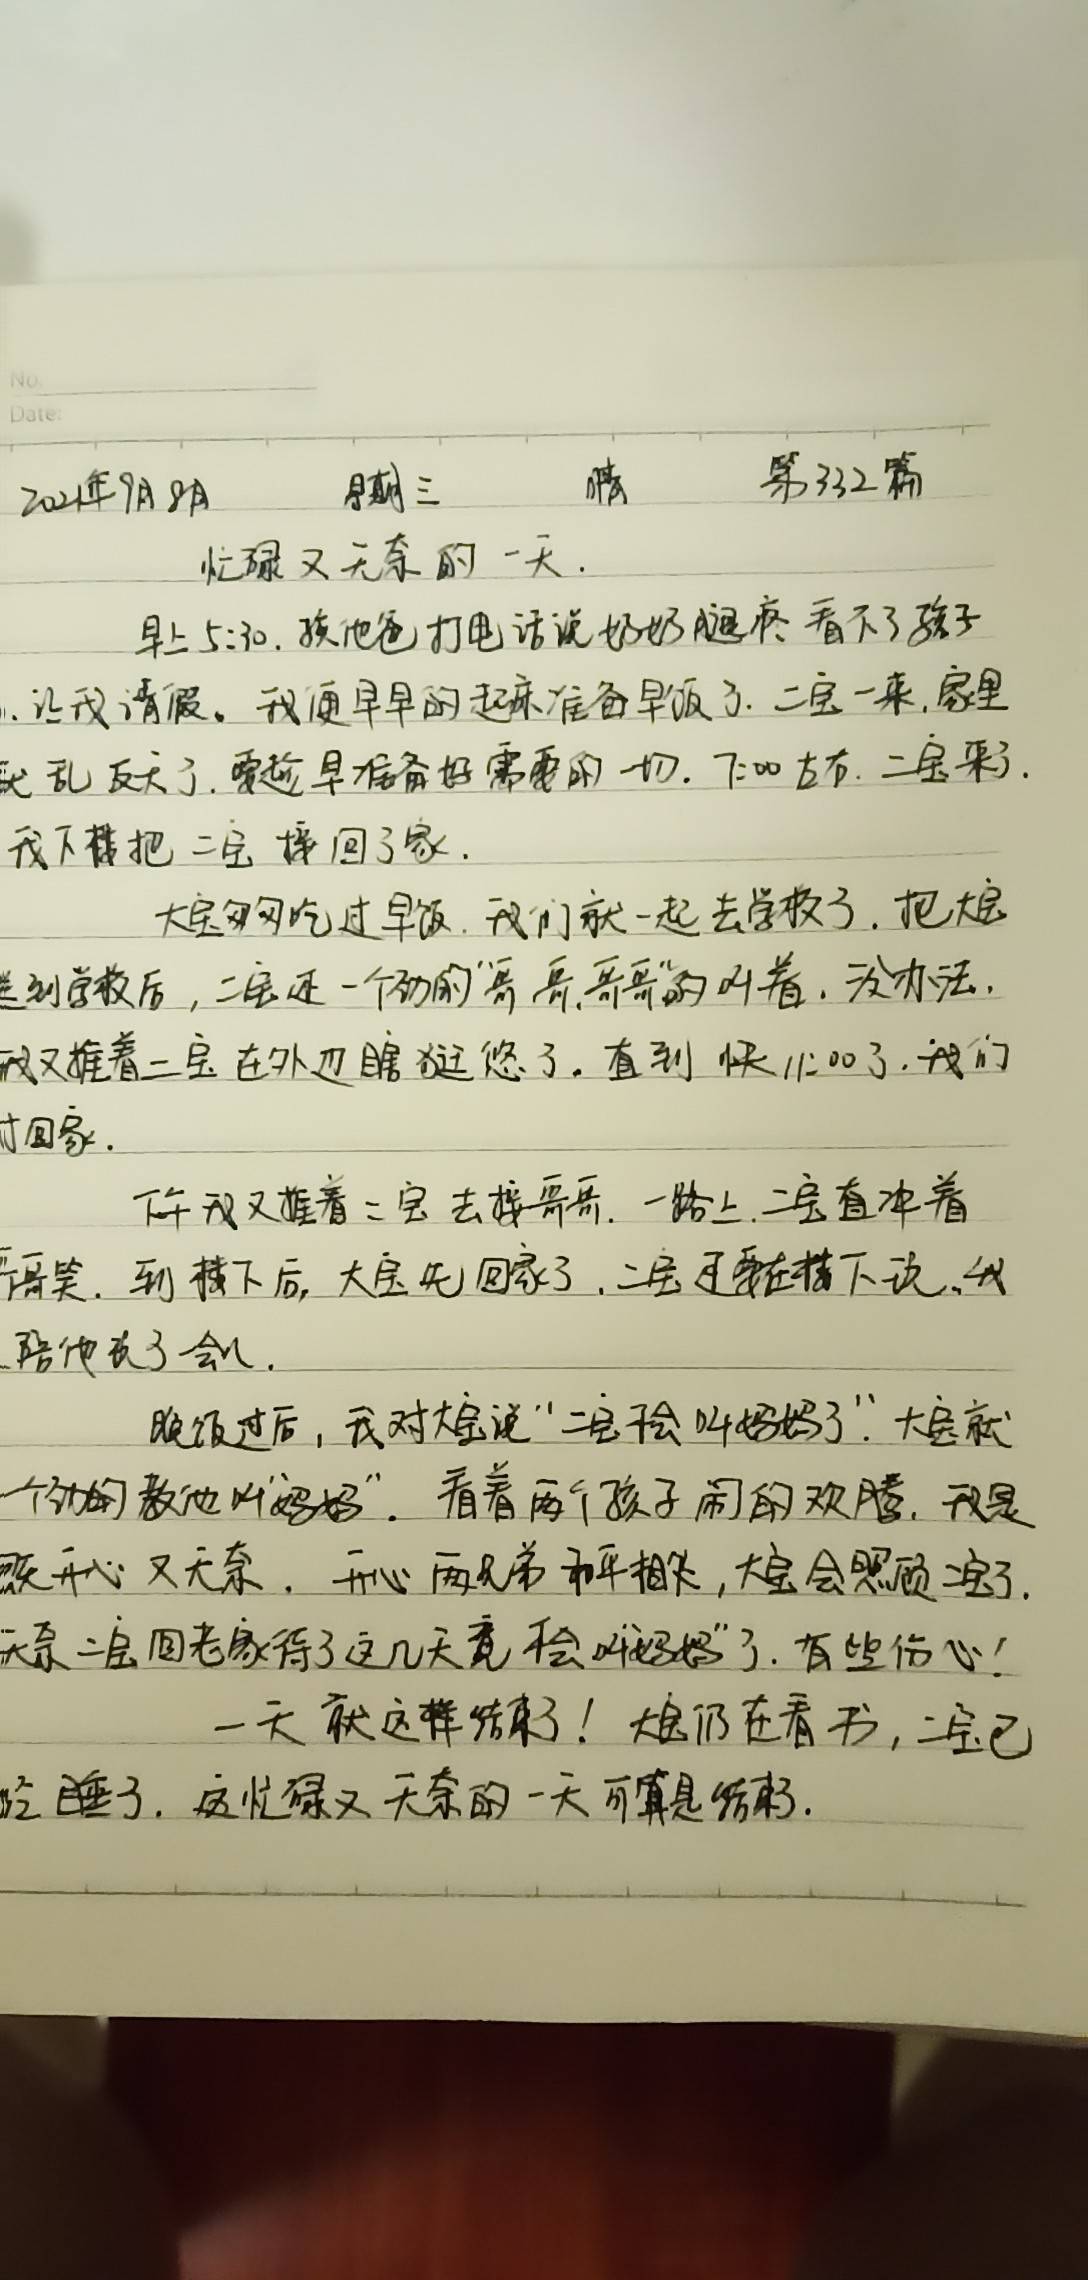 No.
Date:
2021年9月8日 星期三 晴 第332篇
忙碌又无奈的一天.
早上5:30.孩他爸打电话说奶奶腿疼看不了孩子
.让我请假。我便早早的起床准备早饭了.二宝一来.家里
就乱反天了.要趁早准备好需要的一切.7:00左右.二宝来了.
我下楼把二宝接回了家.
大宝匆匆吃过早饭.我们就一起去学校了.把大宝
送到学校后,二宝还一个劲的"哥哥,哥哥"的叫着.没办法.
我又推着二宝在外边瞎逛悠了.直到快11:00了.我们
才回家.
下午我又推着二宝去接哥哥.一路上.二宝直冲着
哥哥笑.到楼下后,大宝先回家了.二宝还要在楼下玩.我
陪他玩了会儿.
晚饭过后,我对大宝说"二宝不会叫妈妈了".大宝就
一个劲的教他叫"妈妈".看着两个孩子闹的欢腾.我是
既开心又无奈.开心两兄弟和平相处,大宝会照顾二宝了.
无奈二宝回老家待了这几天竟不会叫"妈妈"了.有些伤心!
一天就这样结束了!大宝仍在看书,二宝已
经睡了.这忙碌又无奈的一天可算是结束了.